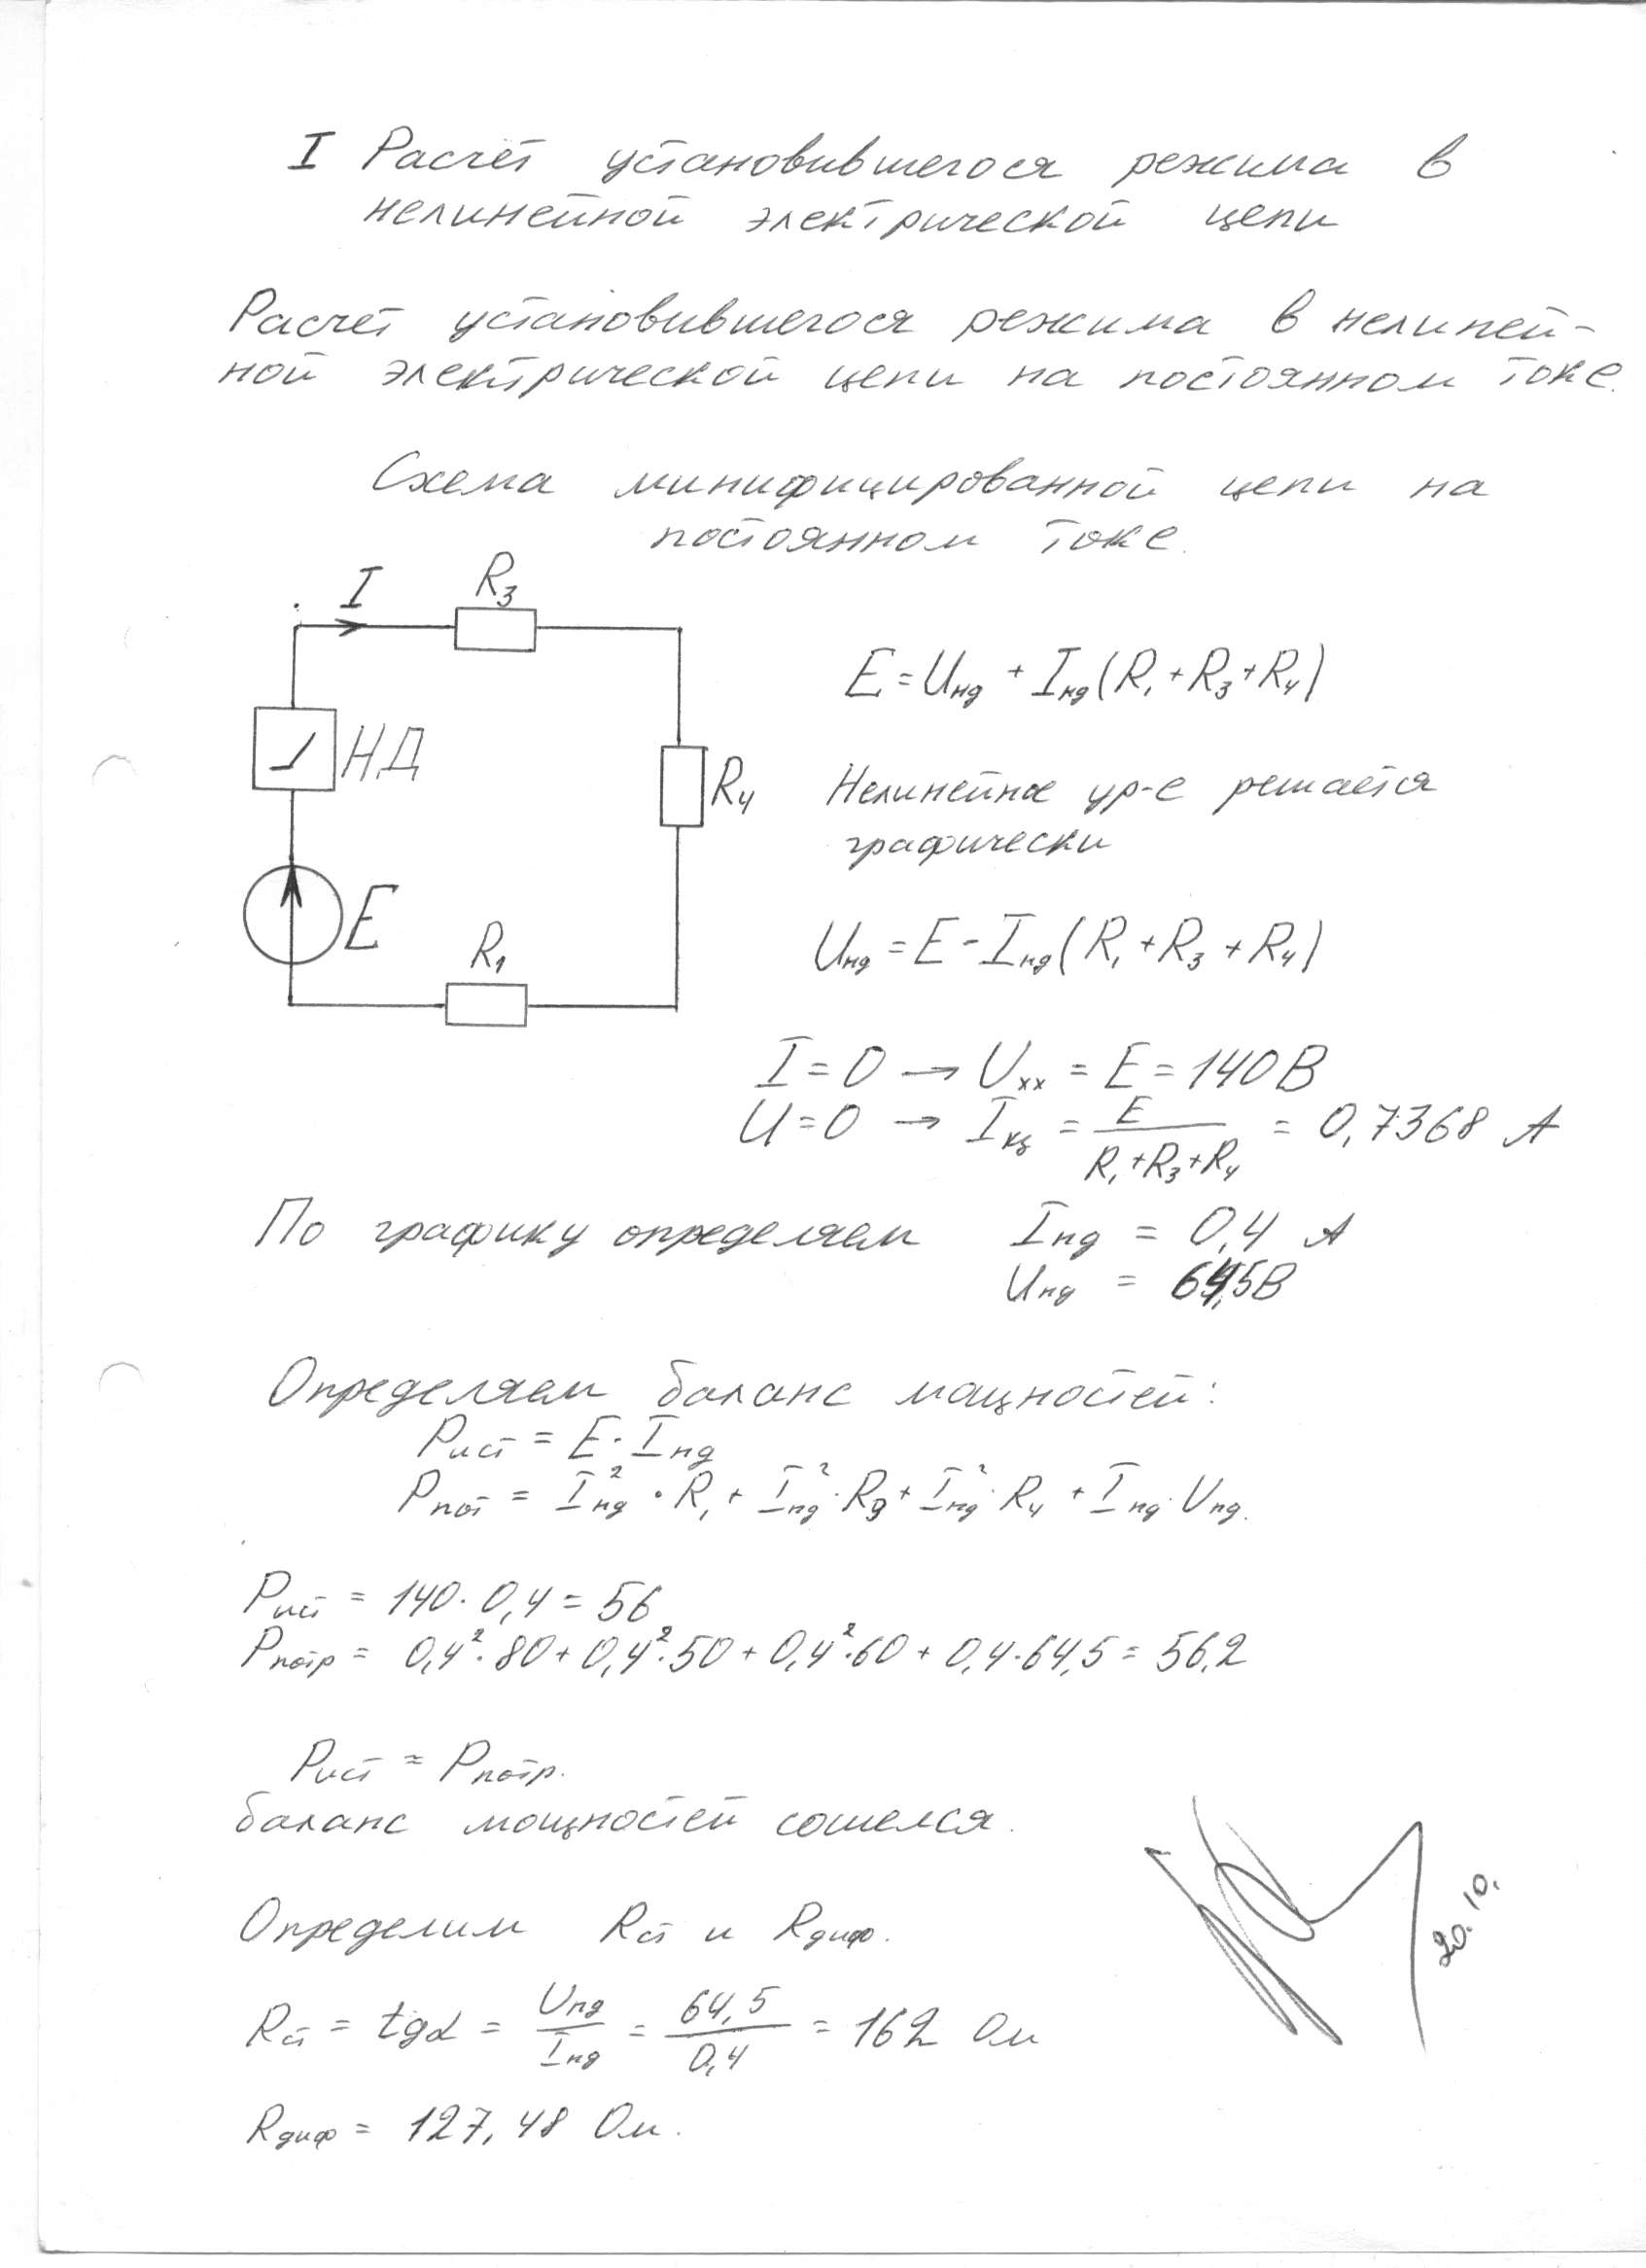 I Расчёт установившегося режима в
нелинейной электрической цепи
Расчет установившегося режима в нелиней-
ной электрической цепи на постоянном токе.
Схема минифицированной цепи на
постоянном токе.
I
R₃
E = Uнд + Iнд(R₁ + R₃ + R₄)
НД
R₄
Нелинейное ур-е решается
графически
E
R₁
Uнд = E - Iнд(R₁ + R₃ + R₄)
I = 0 → Uхх = E = 140 В
U = 0 → Iкз = E / (R₁ + R₃ + R₄) = 0,7368 А
По графику определяем Iнд = 0,4 А
Uнд = 64,5 В
Определяем баланс мощностей:
Pист = E · Iнд
Pпот = Iнд² · R₁ + Iнд² · R₃ + Iнд² · R₄ + Iнд · Uнд.
Pист = 140 · 0,4 = 56
Pпотр = 0,4² · 80 + 0,4² · 50 + 0,4² · 60 + 0,4 · 64,5 = 56,2
Pист ≈ Pпотр.
баланс мощностей сошелся.
Определим Rст и Rдиф.
20.10.
Rст = tgα = Uнд / Iнд = 64,5 / 0,4 = 162 Ом
Rдиф = 127,48 Ом.